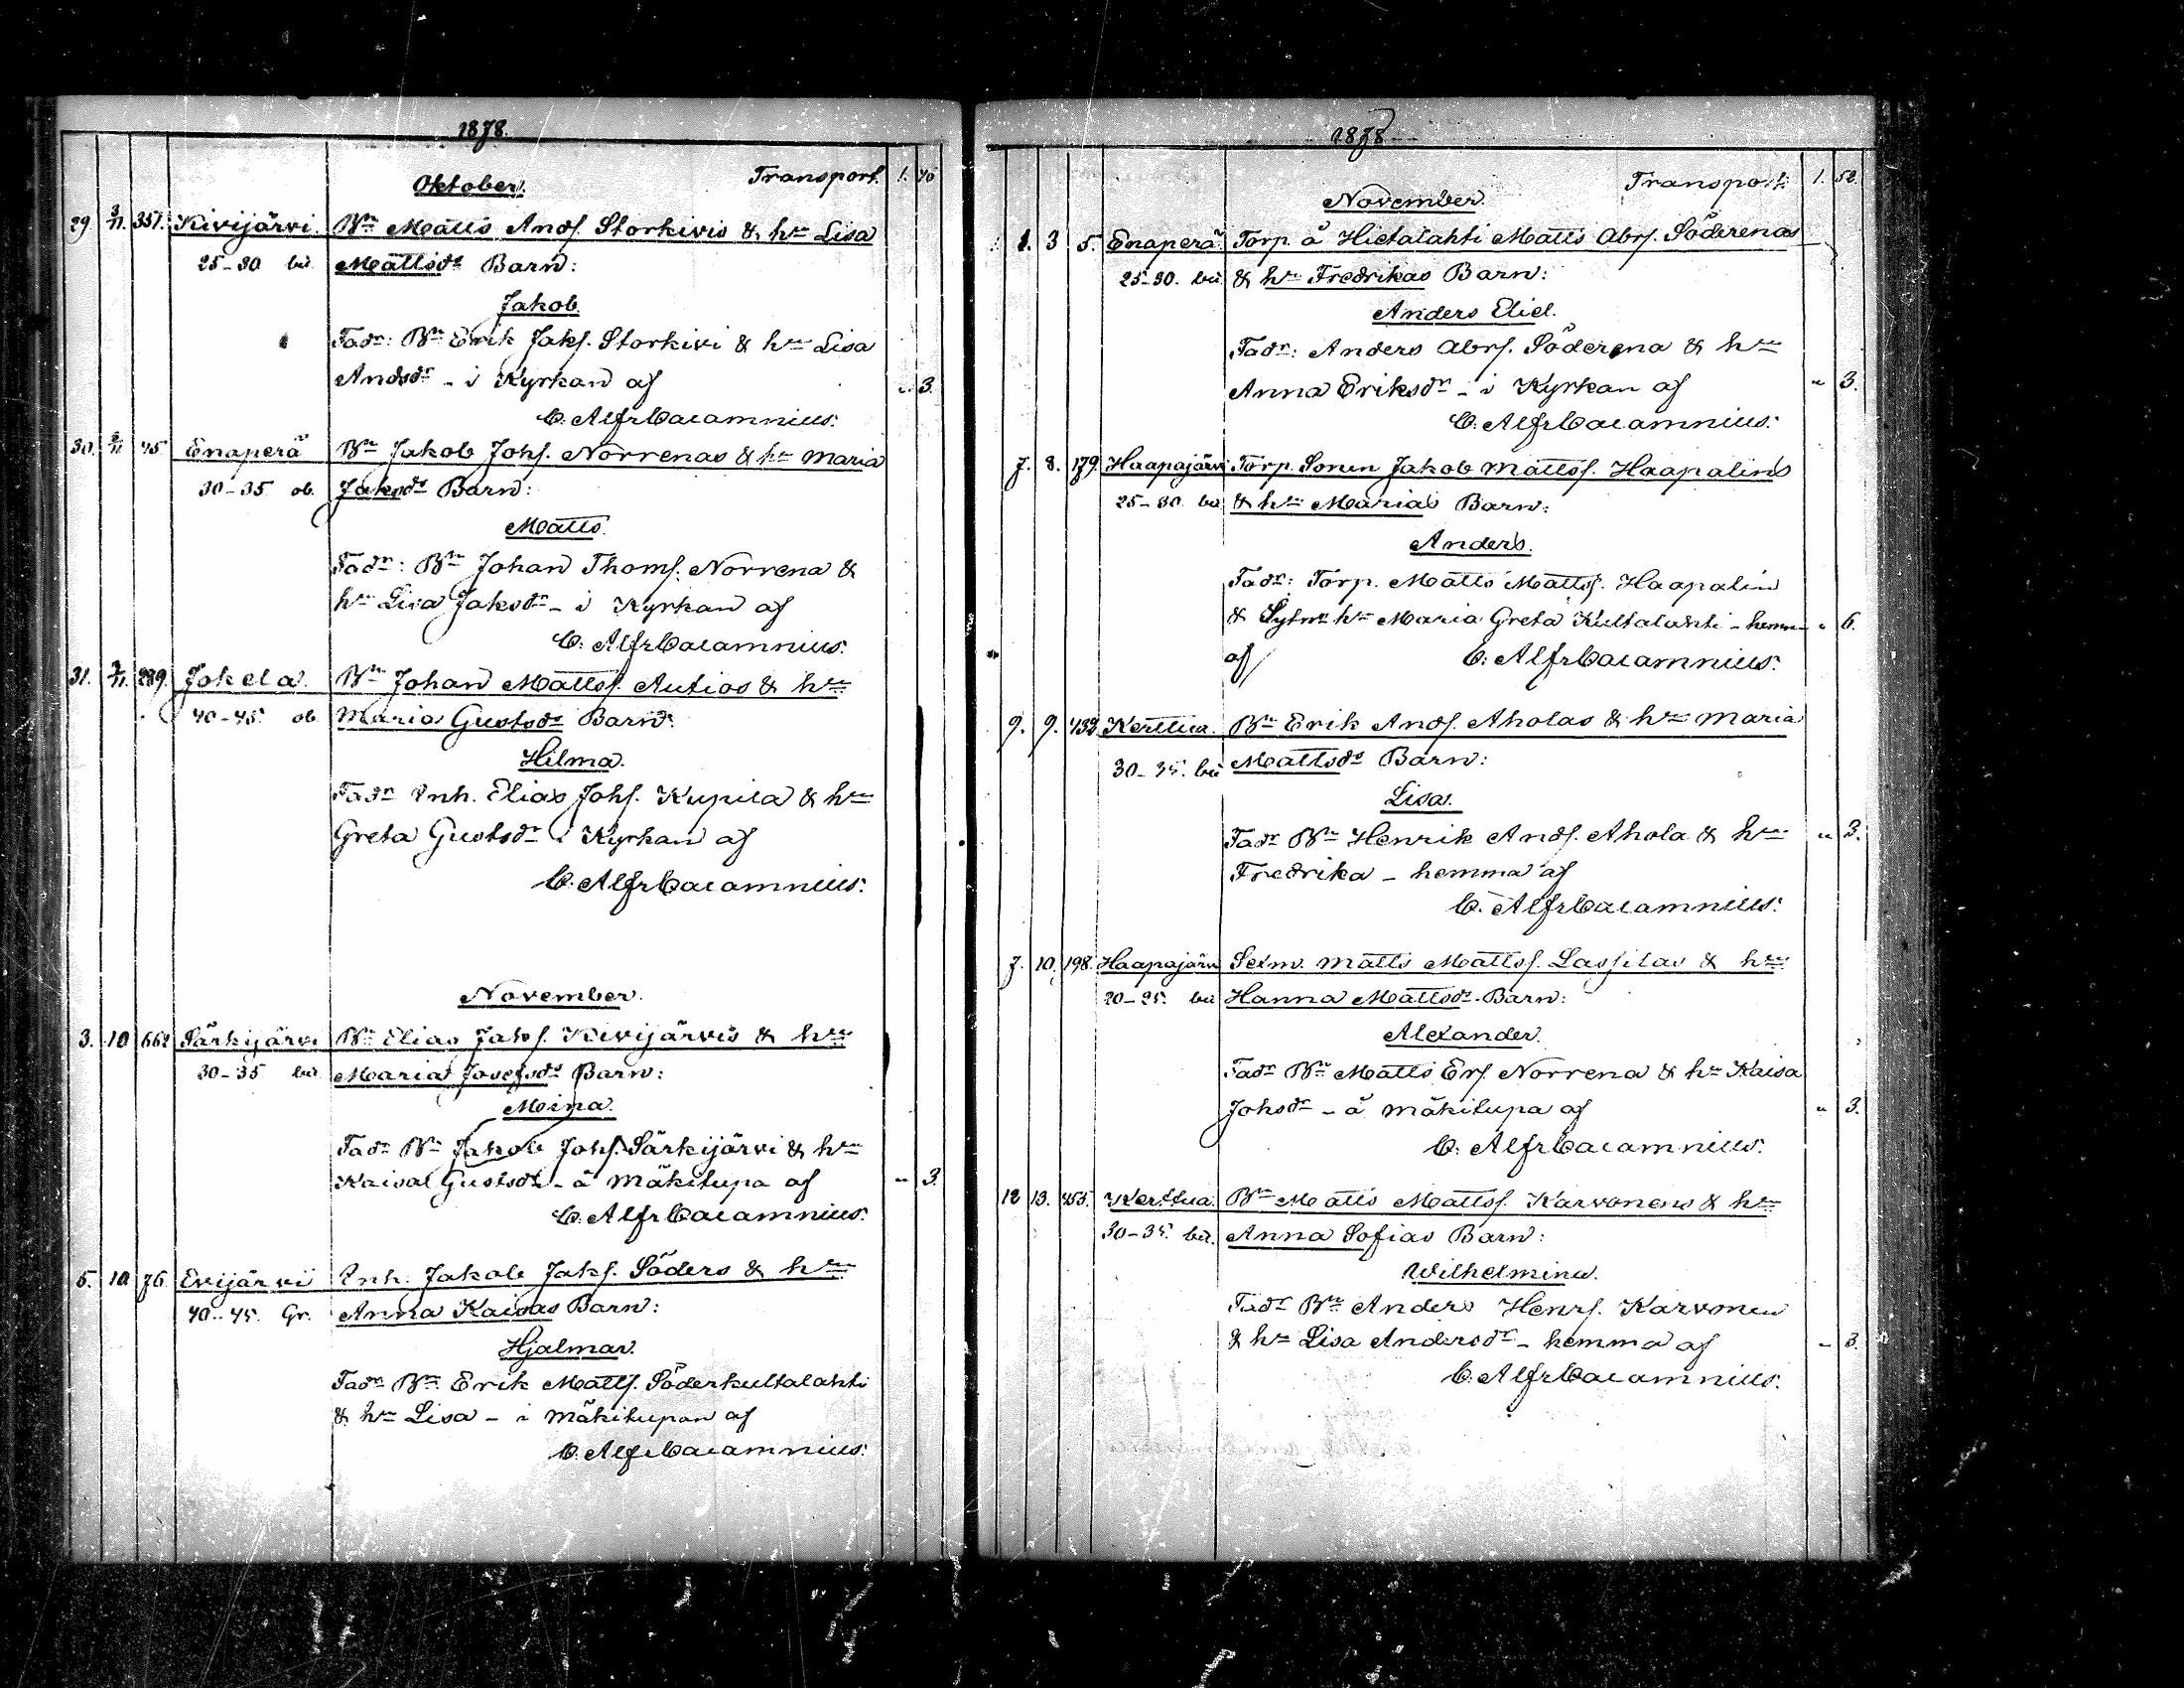 1878.
Oktober. Transport. 1. 40
29 3/11. 351. Kivijärvi. Bn Matts Andſ. Storkivis & hu Lisa
25-30 bä Mattsds Barn:
Jakob.
Fadr: Bn Erik Jakſ. Storkivi & hu Lisa
Andsdr - i Kyrkan af " 3.
C. Alfr Cacamnius.
30. 3/11 45 Enaperä Bn Jakob Johſ. Norrenas & hu Maria
30-35 ob. Jaksds Barn:
Matts.
Fadr: Bn Johan Thomſ. Norrena &
hu Lisa Jaksdr - i Kyrkan af
C. Alfr Cacamnius.
31. 3/11. 289. Jokela. Bn Johan Mattsſ. Autios & hu
40-45. ob Maria Gustsds Barn:
Hilma.
Fadr Inh. Elias Johſ. Kupila & hu
Greta Gustsdr i Kyrkan af
C. Alfr Cacamnius.
November.
3. 10 662 Särkijärvi Bn Elias Jakſ. Kivijärvis & hu
30-35 bä Maria Josefsds Barn:
Mina.
Fadr Bn Jakob Johſ. Särkijärvi & hu
Kaisa Gustsdr - å Mäkitupa af " 3.
C. Alfr Cacamnius.
5. 10 76. Evijärvi Inh. Jakob Jakſ. Söders & hu
40-45. Gr. Anna Kaisas Barn:
Hjalmar.
Fadr Bn Erik Mattſ. Söderkultalahti
& hu Lisa - i mäkitupan af
C. Alfr Cacamnius.
1878
November. Transport. 1. 52.
1. 3 5. Enaperä Torp. å Hietalahti Matts Abrſ. Söderenas
25-30. bä & hu Fredrikas Barn:
Anders Eliel.
Fadr: Anders Abrſ. Söderena & hu
Anna Eriksdr - i Kyrkan af " 3.
C. Alfr Cacamnius.
7. 8. 179. Haapajärvi Torp. Sonen Jakob Mattsſ. Haapalins
25-30. bä & hu Marias Barn:
Anders.
Fadr: Torp. Matts Mattsſ. Haapalin
& Sytm hu Maria Greta Kultalahti - hemma " 6.
af C. Alfr Cacamnius.
9. 9. 432 Kerttua. Bn Erik Andſ. Aholas & hu Maria
30-35. bä Mattsds Barn:
Lisa.
Fadr Bn Henrik Andſ. Ahola & hu " 3.
Fredrika - hemma af
C. Alfr Cacamnius.
7. 10. 198. Haapajärvi Sexm. Matts Mattsſ. Laſsilas & hu
20-25. bä Hanna Mattsds Barn:
Alexander.
Fadr Bn Matts Erſ. Norrena & hu Kaisa
Johsdr - å mäkitupa af " 3.
C. Alfr Cacamnius.
12 13. 455. Kerttua. Bn Matts Mattsſ. Karvonens & hu
30-35. bä. Anna Sofias Barn:
Wilhelmina.
Fadr Bn Anders Henrſ. Karvonen
& hu Lisa Andersdr - hemma af " 3.
C. Alfr Cacamnius.